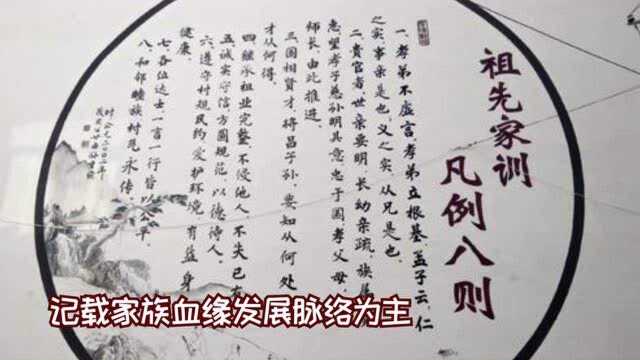 祖先家训
凡例八则
一、孝弟不虚言，孝弟立根基，孟子云，仁
之实事亲是也，义之实，从兄是也。
二、贵官者，世亲要明，长幼亲疏，族居
忠望孝子慈孙明其意，忠于国孝父母，
师长，由此推进。
三、国相贤才将昌子孙，要知从何处
才从何得。
四、继承祖业完整，不侵他人，不失已有
五、诚实守信方圆规范，以德待人。
六、遵守村规民约，爱护环境，有益身
健康。
七、各位达士一言一行皆以公平，
八、和邻睦族村风永传。
时公元二〇〇二年
记载家族血缘发展脉络为主